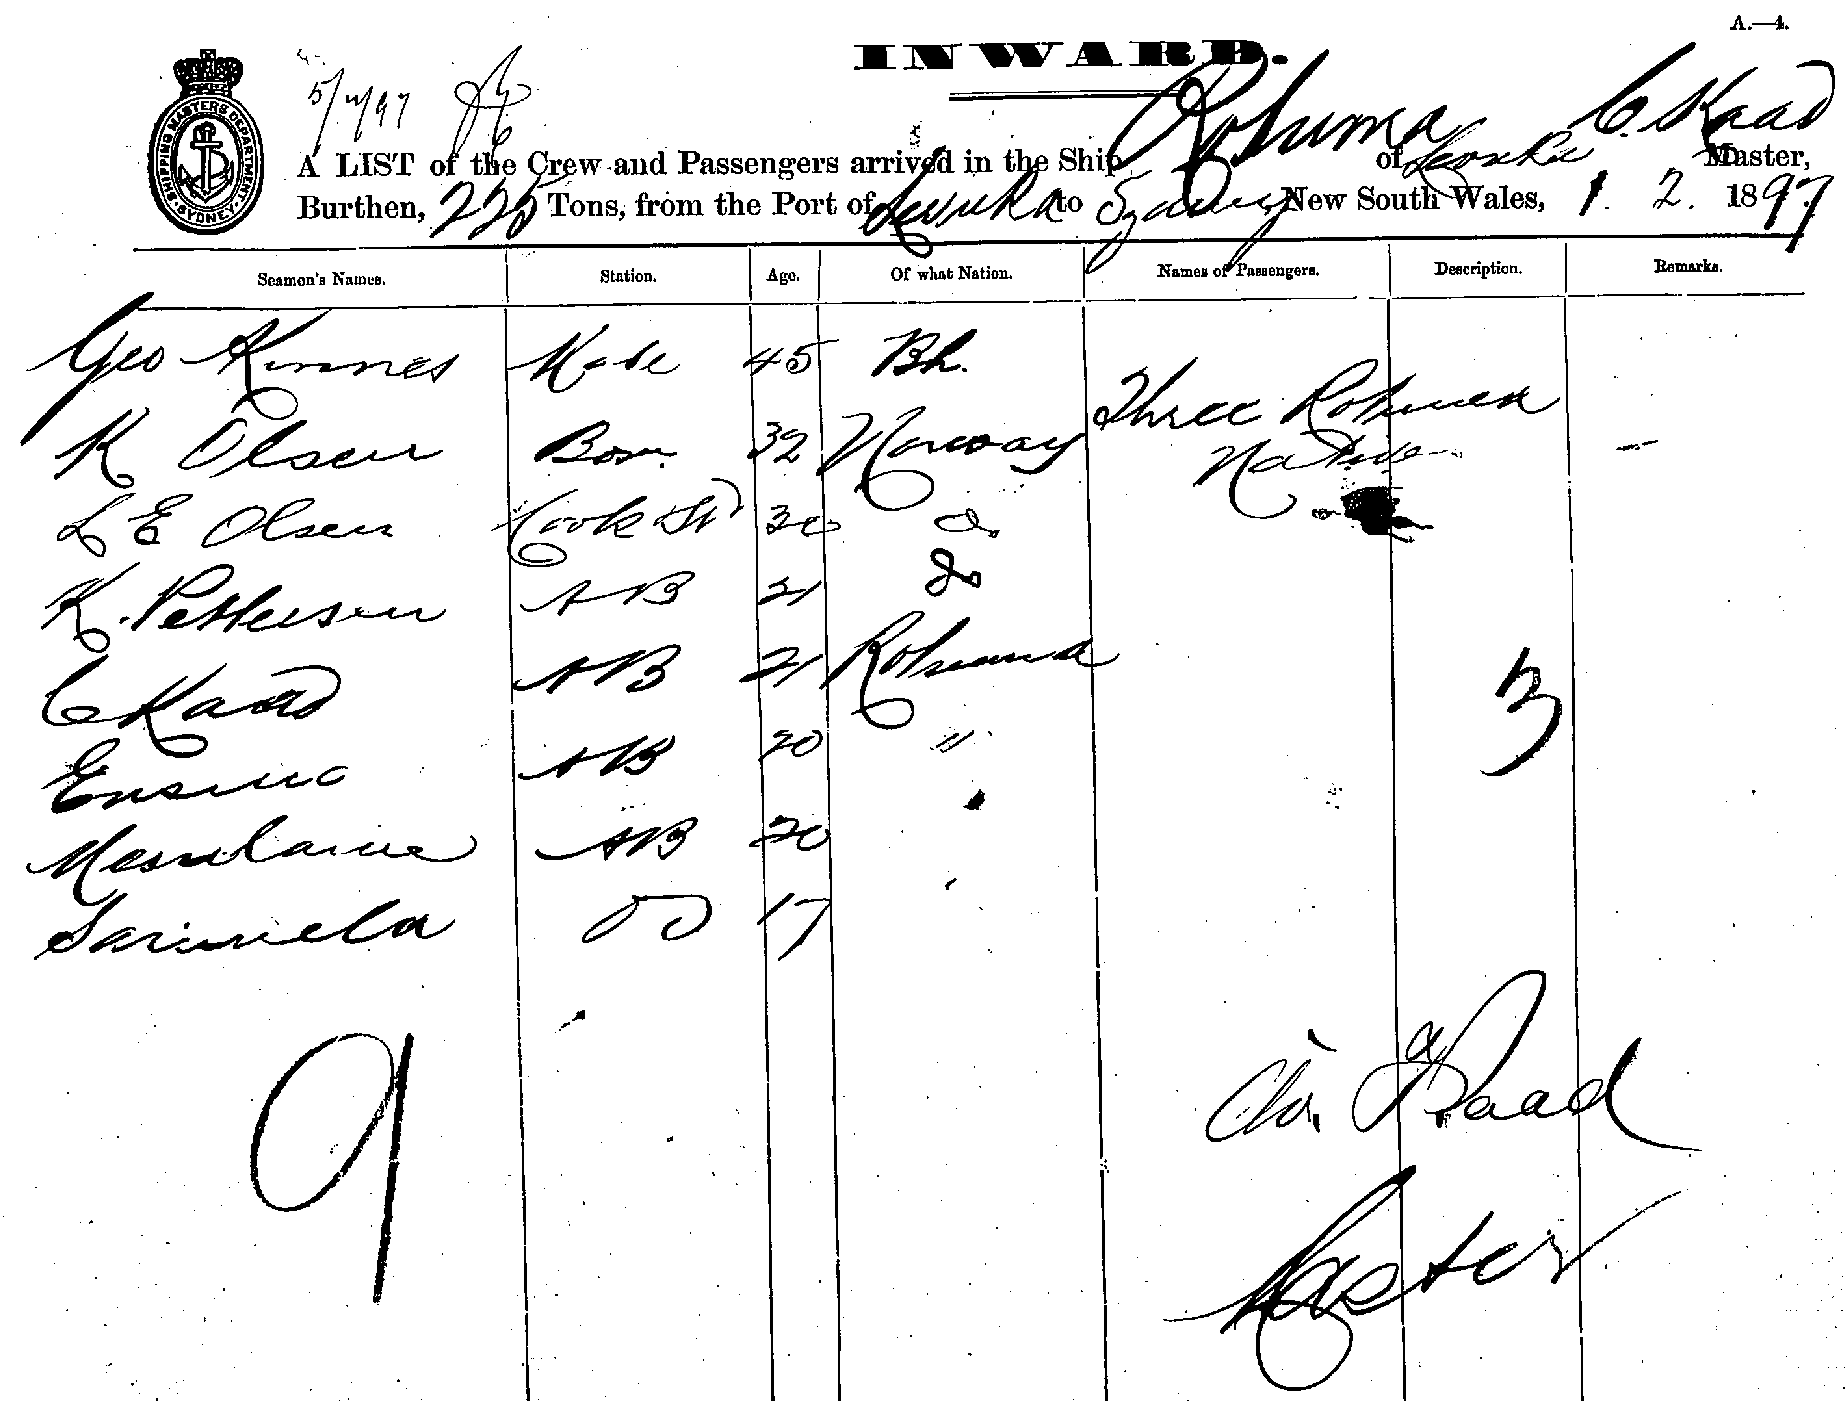 A.—4.
INWARD.
SHIPPING MASTERS DEPARTMENT. SYDNEY.
A LIST of the Crew and Passengers arrived in the Ship Rotuma of C. Kaad Master,
Burthen, 225 Tons, from the Port of Levuka to Sydney New South Wales, 1. 2. 1897
Seamen's Names. Station. Age. Of what Nation. Names of Passengers. Description. Remarks.
Geo Kinnes Mate 45 Bh.
Three Rotumen
K Olsen Bosn. 32 Norway
Natives
L E Olsen Cook St 30 Do.
K. Pettersen AB 21 Do
C Kaad AB 21 Rotuma
3
AB 20 "
AB 20
OS 17
9
Chr. Kaad
Master